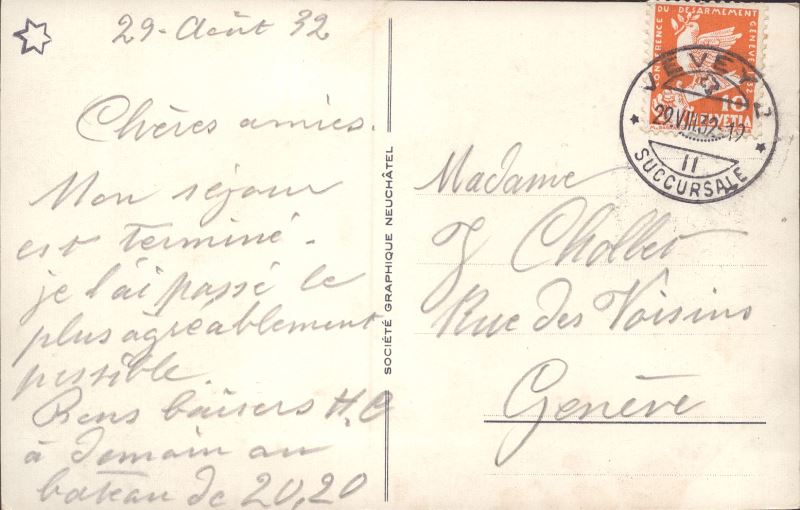 29-Août 32
Chères amies.
Mon séjour
est terminé.
je l'ai passé le
plus agréablement
possible.
Bons baisers H.C
à demain au
bateau de 20,20
SOCIÉTÉ GRAPHIQUE NEUCHÂTEL
CONFÉRENCE DU DÉSARMEMENT GENÈVE 1932
10
HELVETIA
VEVEY 2
29.VIII.32-19
II
SUCCURSALE
Madame
J Chollet
Rue des Voisins
Genève